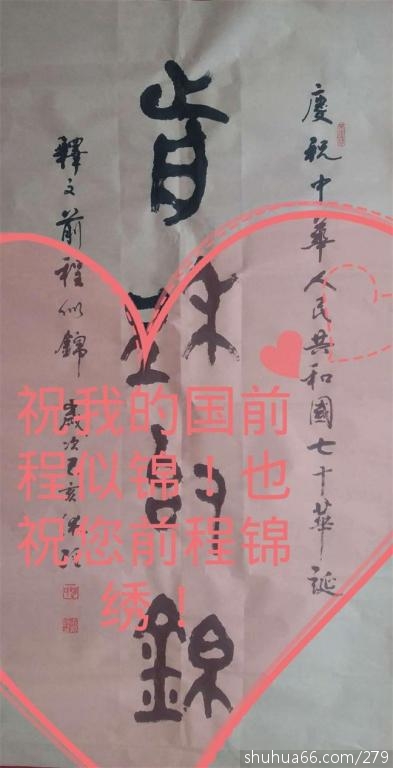 慶祝中華人民共和國七十華誕
前程似錦
釋文前程似錦
歲次己亥
祝我的国前
程似锦！也
祝您前程锦
绣！
shuhua66.com/279